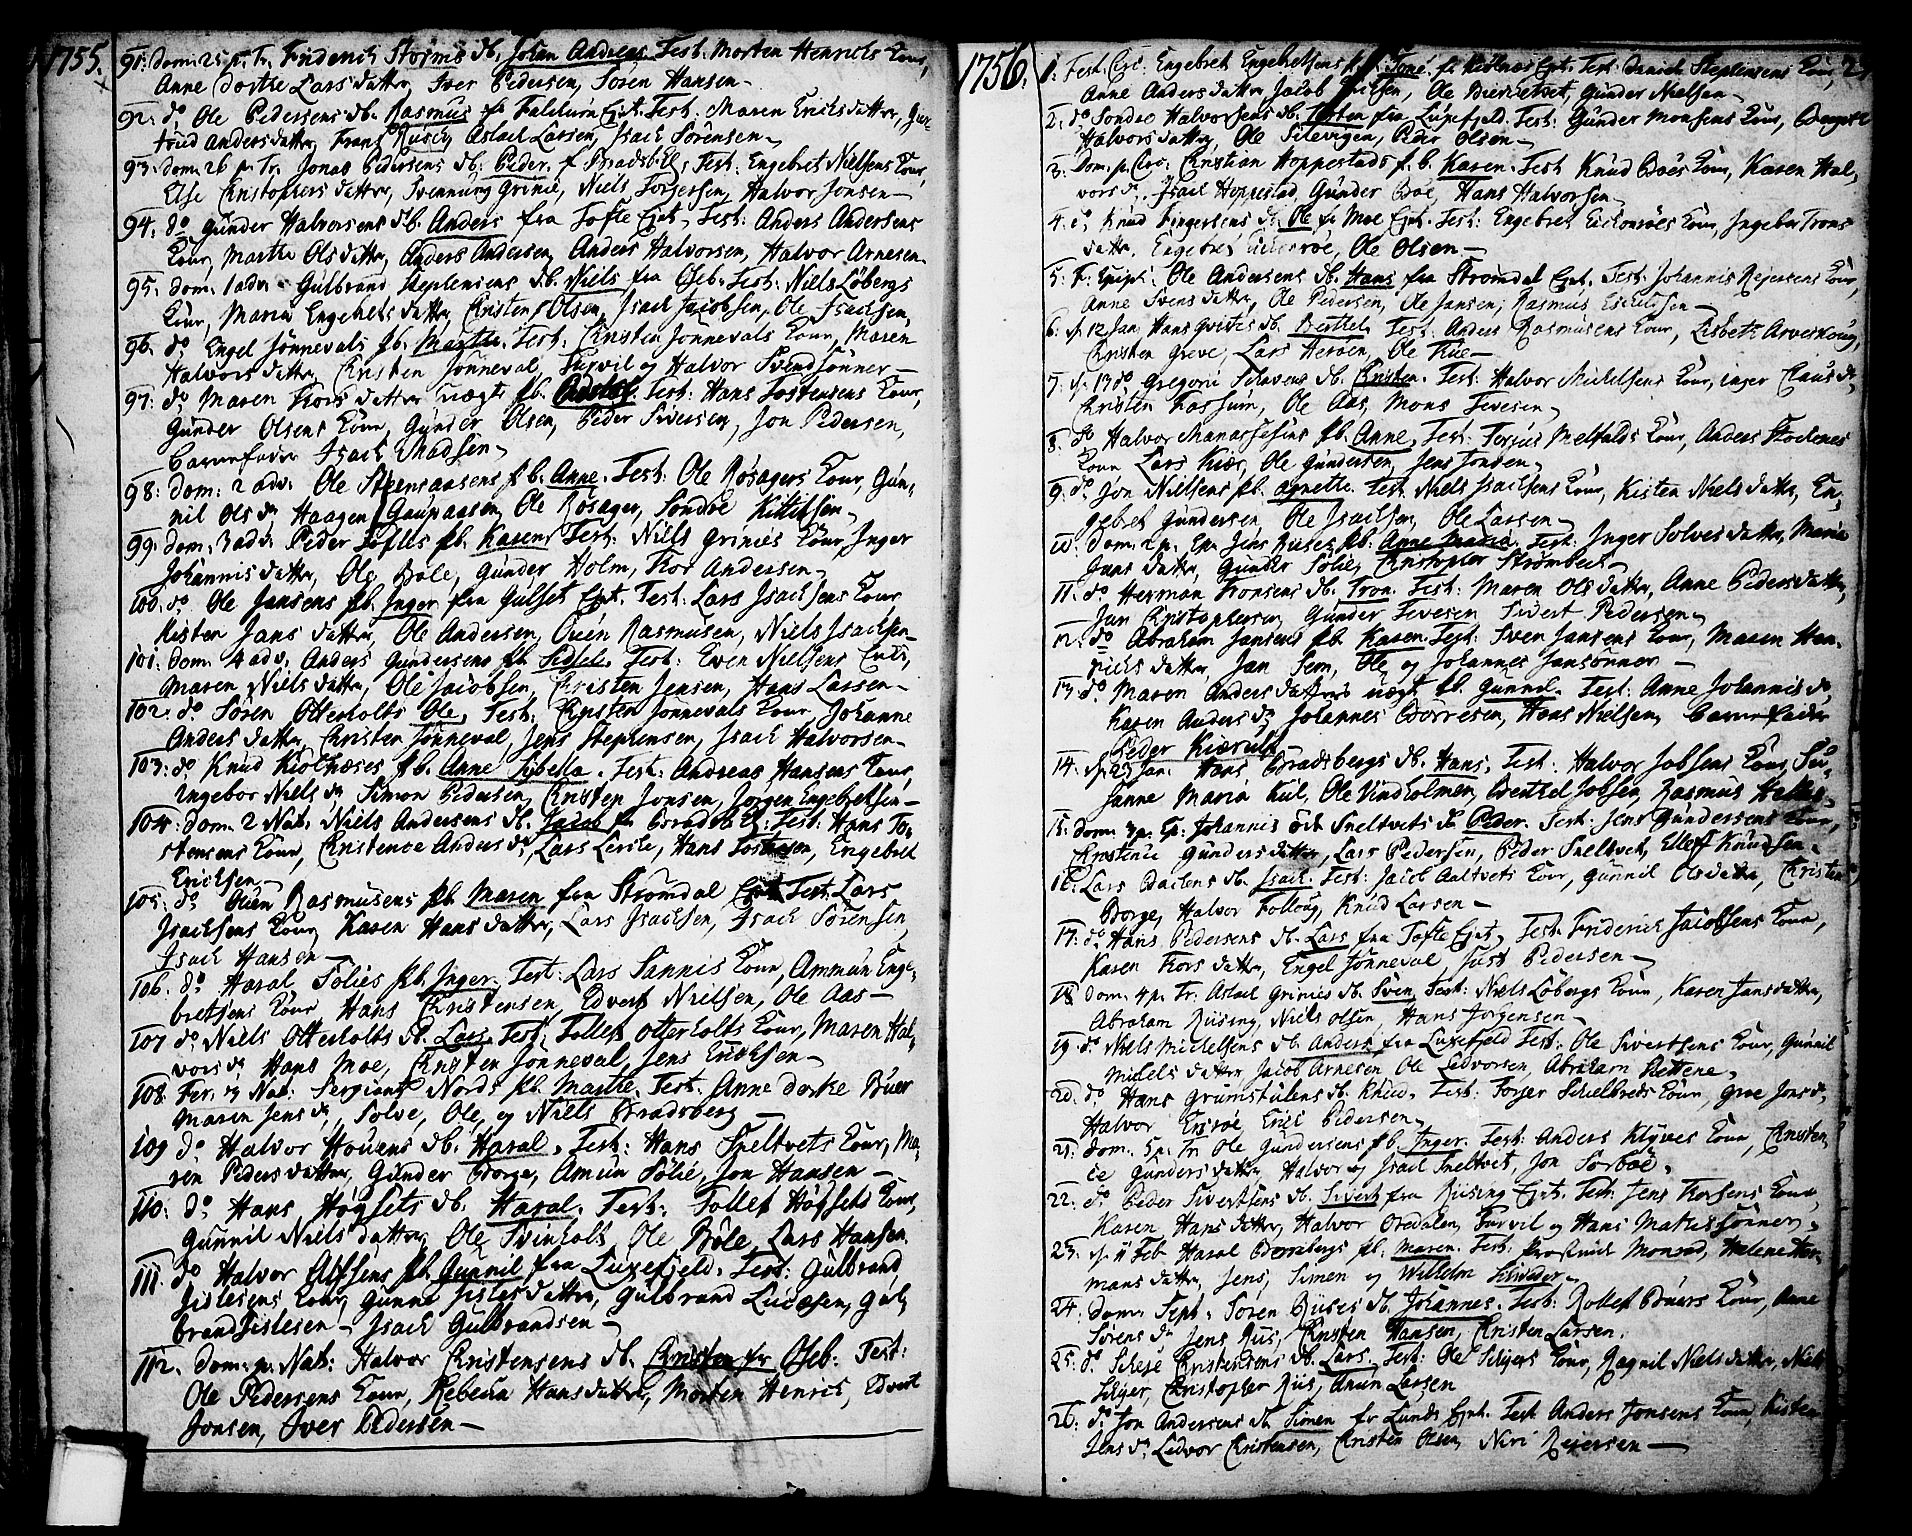 1755.
91. dom. 25 p. Tr. Friderich Storms db. Johan Andreas. Test: Morten Henrichs Kone,
Anne Dorthe Lars datter, Iver Pedersen, Sören Hansen.
92. do Ole Pedersens db. Rasmus fra Falchum Ejet. Test: Maren Erichs datter, Ger-
trud Anders datter, Franz Aslach Larsen, Isach Sörensen
93. dom. 26 p. Tr. Jonas Pedersens db. Peder f. Bradsb. Test: Engebret Nielsens Kone,
Else Christophers datter, Svennung Grinie, Niels Torgersen, Halvor Jonsen
94. do Gunder Halvorsens db. Anders fra Tofte Ejet. Test: Anders Andersens
Kone, Marthe Ols datter, Anders Andersen, Anders Halvorsen, Halvor Arnesen.
95. dom. 1 adv. Gulbrand Stephensens db. Niels fra Oseb. Test: Niels Löbergs
Kone, Maria Engebrets datter, Christen Olsen, Isach Jacobsen, Ole Isachsen,
96. do Engel Jönnevals pb. Marthe. Test: Christen Jönnevals Kone, Maren
Halvors datter, Christen Jönneval, Turvil og Halvor Svendsönner
97. do Maren Thors datter uægte pb. Test: Hans Tostensens Kone,
Gunder Olsens Kone, Gunder Olsen, Peder Iversen, Jon Pedersen,
Barnefader Isach Madsen
98. dom. 2 adv. Ole Steensaasens pb. Anne. Test: Ole Rösagers Kone, Gun-
nil Ols dr, Haagen Gaupaasen, Ole Rösager, Sondre Kittilsen
99. dom. 3 adv. Peder Toftes pb. Karen. Test: Niels Grinies Kone, Inger
Johannis datter, Ole Böle, Gunder Holm, Thor Andersen
100. do Ole Jansens pb. Inger fra Gulset Ejet. Test: Lars Isachsens Kone
Kisten Jans datter, Ole Andersen, Ouen Rasmusen, Niels Isachsen
101. dom. 4 adv. Anders Gundersens pb. Sidsele. Test: Even Nielsens Kone,
Maren Niels datter, Ole Jacobsen, Christen Jensen, Hans Larsen
102. do Sören Otterholts Ole, Test: Christen Jonnevals Kone, Johanne
Anders datter, Christen Jönneval, Jens Stephensen, Isach Halvorsen
103. do Knud Kiolnæses pb. Anne Sybella. Test: Andreas Hansens Kone,
Ingebor Niels dr, Simon Pedersen, Christen Jonsen, Jörgen Engebretsen
104. dom. 2 Nat. Niels Andersens db. Jacob fr. Bradsb. Test: Hans To-
stensens Kone, Christence Anders dr, Lars Lerche, Hans Tostensen, Engebret
Erichsen
105. do Ouen Rasmusens pb. Maren fra Strömdal Ejet. Test: Lars
Isachsens Kone, Karen Hans datter, Lars Isachsen, Isach Sörensen
Isach Hansen
106. do Haral Solies pb. Inger. Test: Lars Sannis Kone, Ammun Enge-
bretsens Kone, Hans Christensen, Edvert Nielsen, Ole Aas
107. do Niels Otterholts db. Lars. Test: Tollef Otterholts Kone, Maren Hal-
vors dr, Hans Moe, Christen Jönneval, Jens Erichsen
108. Fer. 3 Nat: Sergiant Nords pb. Marthe. Test: Anne Dorthe Buer
Maren Jens dr, Solve, Ole, og Niels Bradsberg
109. do Halvor Houens db. Haral. Test: Hans Sneltvets Kone, Ma-
ren Peders datter, Gunder Borge, Amun Solie, Jon Hansen
110. do Hans Högsets db. Haral. Test: Tollef Högsets Kone,
Gunnil Niels datter, Ole Tvinholt, Ole Böle, Lars Hansen
111. do Halvor Alfsens pb. Gunnil fra Luxefjeld. Test: Gulbrand
Gislesens Kone, Gunne Gisles datter, Gulbrand Lucæsen, Gul-
brand Gislesen, Isach Gulbrandsen
112. dom. p. Nat: Halvor Christensens db. Christen fr Oseb: Test:
Ole Pedersens Kone, Rebecca Hans datter, Morten Henrich, Edvert
Jonsen, Iver Pedersen
1756.
1. Fest. Circ: Engebret Engebretsens pb. Tone fr. Kiölnæs Ejet. Test: Daniel Stephensens Kone,
Anne Anders datter, Jacob Erichsen, Ole Bierketvet, Gunder Nielsen
2. do Sondre Halvorsens db. Torsten fra Luxefjeld. Test: Gunder Monsens Kone,
Halvors datter, Ole Silevigen, Peder Olsen
3. Dom. p. Circ. Christian Hoppestads pb. Karen. Test Knud Böes Kone, Karen Hal-
vors dr, Isach Hoppestad, Gunder Böe, Hans Halvorsen
4. do Knud Ingersens db. Ole fr. Moe Ejet. Test: Engebret Kone, Ingebor Trons
datter, Engebret Ole Olsen
5. F. Epiph: Ole Andersens db. Hans fra Strömdal Ejet. Test: Johannis Rejersens Kone,
Anne Svens datter, Ole Pedersen, Ole Jansen, Rasmus
6. d. 12 Jan Hans Qvites db. Berthel. Test: Anders Rasmusens Kone, Lisbeth
Christen Greve, Lars Heröen, Ole Riie
7. d. 13 do Gregorii db. Christen. Test: Halvor Michelsens Kone, Inger Claus dr
Christen Fossum, Ole Aas, Mons Tevesen
8. do Halvor Manassesens pb. Anne. Test: Torjus Melfalds Kone, Anders Stochenes
Kone, Lars Kiær, Ole Gundersen, Jens Jonsen
9. do Jon Nielsens pb. Agnette. Test: Niels Isachsens Kone, Kisten Niels datter, En-
gebret Gundersen, Ole Isachsen, Ole Larsen
10. dom. 2 p. Ep. Jens Ruses pb. Anne Maria. Test: Inger Solves datter, Maria
Jans datter, Gunder Solie, Christopher Strömbech
11. do Herman Tronsens db. Tron. Test: Maren Ols datter, Anne Peders datter,
Jan Christophersen, Gunder Tevesen, Sivert Pedersen
12. do Abraham Jansens pb. Karen. Test: Sven Jansens Kone, Maren Hen-
richs datter, Jan Sem, Ole og Johannes Jansönner
13. do Maren Anders datters uægt. pb. Gunnil. Test: Anne Johannis dr,
Karen Anders dr, Johannes Börresen, Hans Nielsen, Barnefader
Peder Kiærulf
14. d. 23 Jan. Hans Bradsbergs db. Hans. Test: Halvor Jobsens Kone, Su-
sanne Maria Kul, Ole Vindholmen, Wentzel Jobsen, Rasmus
15. dom. 3 p. Ep. Johannis Sneltvets db. Peder. Test: Jens Gundersens Kone,
Christence Gunders datter, Lars Pedersen, Peder Sneltvet, Ellef Knudsen
16. Lars Bachens db. Isach. Test: Jacob Aaltvets Kone, Gunnil Ols datter, Christen
Borge, Halvor Follaug, Knud Larsen
17. do Hans Pedersens db. Lars fra Tofte Ejet. Test: Friderich Jacobsens Kone,
Karen Thors datter, Engel Jönneval, Just Pedersen
18. dom. 4 p. Tr. Aslach Grinies db. Sven. Test: Niels Löbergs Kone, Karen Jans datter,
Abraham Riising, Niels Olsen, Hans Jorgensen
19. do Niels Michelsens db. Anders fra Luxefjeld Test: Ole Sivertsens Kone, Gunnil
Michels datter, Jacob Arnesen, Ole Ledvorsen, Abraham Slettene
20. do Hans Grumstulens db. Knud. Test: Torger Schelbreds Kone, Groe Jons dr,
Halvor Ersröe, Eric Pedersen
21. dom. 5 p. Tr. Ole Gundersens pb. Inger. Test: Anders Klyves Kone, Christen-
ce Gunders datter, Halvor og Isach Sneltvet, Jon Sorböe
22. do Peder Sivertsens db. Sivert fra Riising Ejet. Test: Jens Thorsens Kone
Karen Hans datter, Halvor Ordalen, Turvil og Hans Mathissönner
23. d. 11 Feb Haral Borsebergs pb. Maren. Test: Monrad, Helene Her-
mans datter, Jens, Simen og Willhelm Schröder
24. dom. Sept. Soren Riises db. Johannes. Test: Rollef Bruers Kone, Anne
Sörens dr, Jens Riis, Christen Hansen, Christen Larsen
25. do Schese Christensens db. Lars. Test: Ole Schyers Kone, Ragnil Niels datter, Niels
Schyer, Christopher Riis, Amun Larsen
26. do Jon Andersens db. Simen fr Lunds Ejet. Test Anders Jonsens Kone, Kisten
Jens dr, Ledvor Christensen, Christen Olsen, Niri Rejersen